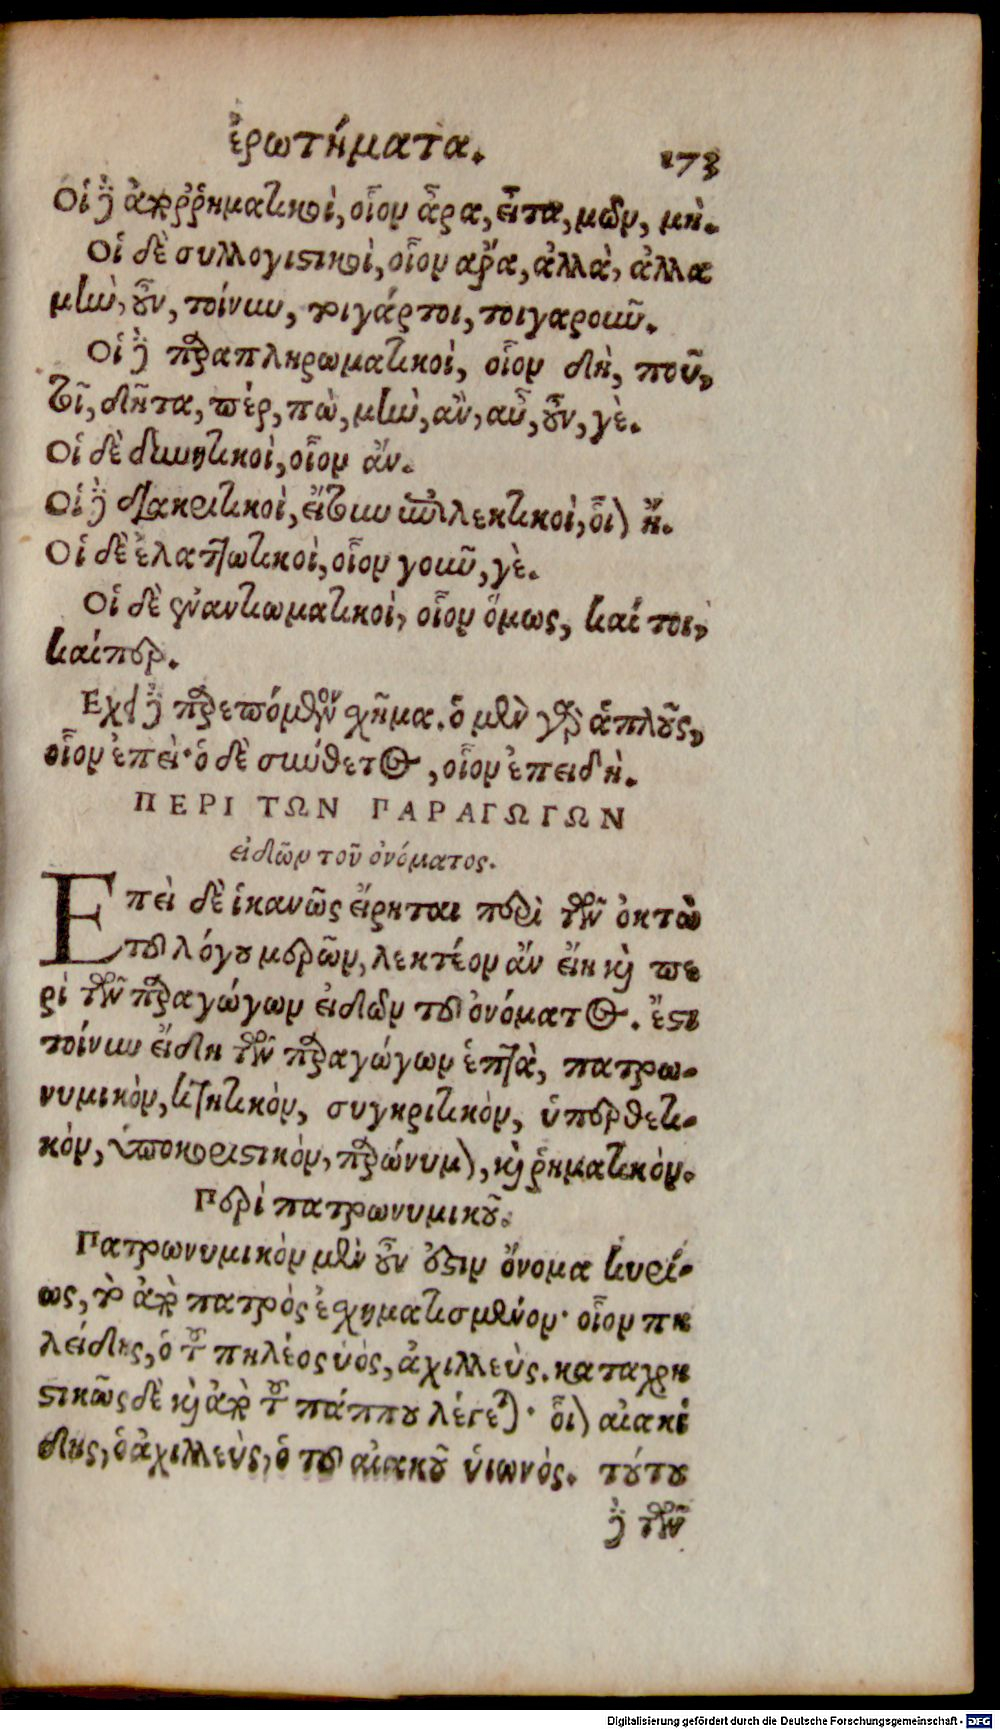 ἐρωτήματα. 173
Οἱ δὲ ἀπορρηματικοὶ, οἷον ἆρα, εἶτα, μῶν, μὴ.
Οἱ δὲ συλλογιστικοὶ, οἷον ἄρα, ἀλλὰ, ἀλλα
μὴν, οὖν, τοίνυν, τοιγάρτοι, τοιγαροῦν.
Οἱ δὲ παραπληρωματικοί, οἷον δὴ, ποῦ,
τοῖ, δῆτα, πὲρ, πὼ, μὴν, ἂν, αὖ, οὖν, γὲ.
Οἱ δὲ δυνητικοὶ, οἷον ἄν.
Οἱ δὲ διακριτικοὶ, εἴτουν διαλεκτικοὶ, οἷον ἤ.
Οἱ δὲ ἐλαττωτικοὶ, οἷον γοῦν, γὲ.
Οἱ δὲ ἐναντιωματικοὶ, οἷον ὅμως, καί τοι,
καίπερ.
Εχει δὲ παρεπόμενον σχῆμα. ὁ μὲν γὰρ ἁπλοῦς,
οἷον ἐπεὶ· ὁ δὲ σύνθετος, οἷον ἐπειδὴ.
ΠΕΡΙ ΤΩΝ ΠΑΡΑΓΩΓΩΝ
εἰδῶν τοῦ ὀνόματος.
Επεὶ δὲ ἱκανῶς εἴρηται περὶ τῶν ὀκτὼ
τοῦ λόγου μερῶν, λεκτέον ἂν εἴη καὶ πε
ρὶ τῶν παραγώγων εἰδῶν τοῦ ὀνόματος. ἔστι
τοίνυν εἴδη τῶν παραγώγων ἑπτὰ, πατρω-
νυμικὸν, κτητικὸν, συγκριτικὸν, ὑπερθετι-
κὸν, ὑποκοριστικὸν, παρώνυμον, καὶ ῥηματικὸν.
Περὶ πατρωνυμικοῦ.
Πατρωνυμικὸν μὲν οὖν ἐστιν ὄνομα κυρί-
ως, τὸ ἀπὸ πατρὸς ἐσχηματισμένον· οἷον πη
λείδης, ὁ τοῦ πηλέος ὑὸς, ἀχιλλεὺς. καταχρη
στικῶς δὲ καὶ ἀπὸ τοῦ πάππου λέγεται· οἷον αἰακί
δης, ὁ ἀχιλλεὺς, ὁ τοῦ αἰακοῦ ὑιωνὸς. τούτου
δὲ τῶν
Digitalisierung gefördert durch die Deutsche Forschungsgemeinschaft - DFG